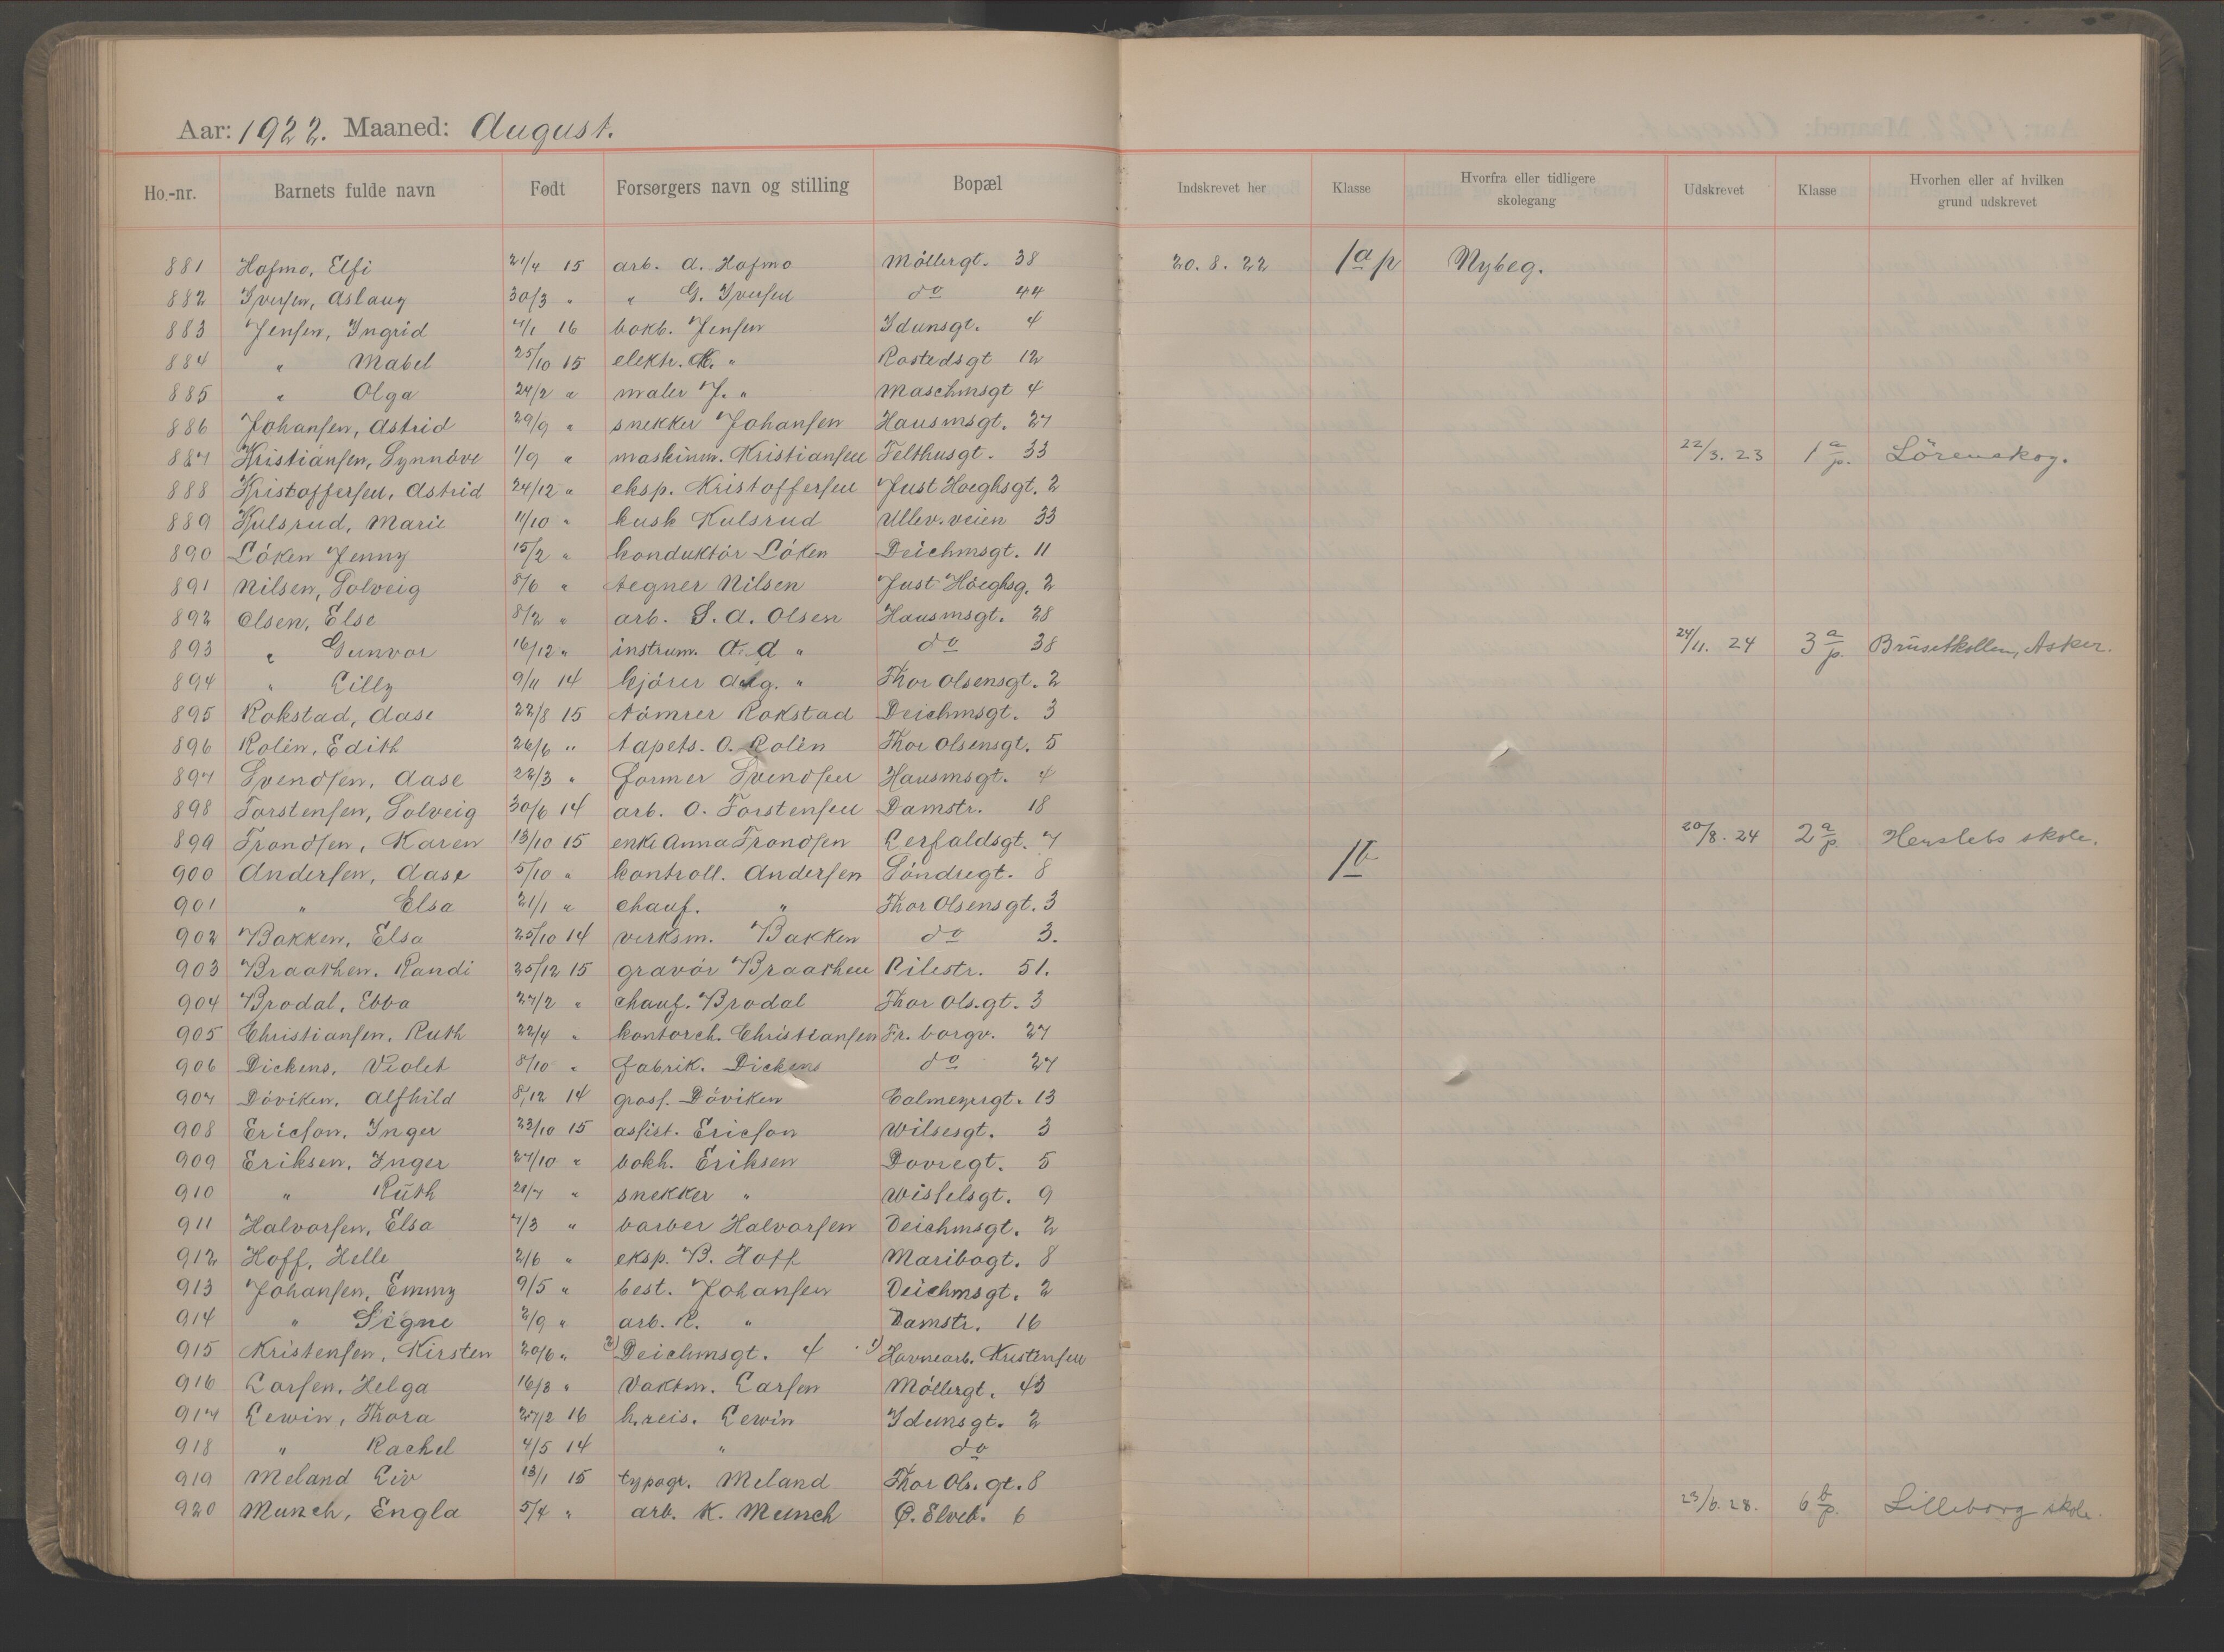 Aar: 1922. Maaned: August.
Ho.-nr. Barnets fulde navn Født Forsørgers navn og stilling Bopæl Indskrevet her Klasse Hvorfra eller tidligere skolegang Udskrevet Klasse Hvorhen eller af hvilken grund udskrevet
881 Hofmo, Elfi 21/4 15 arb. A. Hofmo Möllergt. 38 20.8.22 1a p Nybeg.
882 Iversen, Aslaug 30/3 " " G. Iversen do 44
883 Jensen, Ingrid /1 16 bokb. Jensen Idunsgt. 4
884 " Mabel 25/10 15 elektr. " Rostedsgt 12
885 " Olga 24/2 " maler J. " Maschmsgt 4
886 Johansen, Astrid 29/9 " snekker Johansen Hausmsgt. 27
887 Kristiansen, Synnöve 1/9 " maskinm. Kristiansen Felthusgt. 33 22/3. 23 1 a/p. Lörenskog.
888 Kristoffersen, Astrid 24/12 " eksp. Kristoffersen Just Hoeghsgt. 2
889 Hulsrud, Marie 11/10 " kusk Hulsrud Ullev. veien 33
890 Löken Jenny 15/2 " konduktör Löken Deichmsgt. 11
891 Nilsen, Solveig 8/6 " tegner Nilsen Just Höeghsg. 2
892 Olsen, Else 8/2 " arb. S. A. Olsen Hausmsgt. 28
893 " Gunvor 16/12 " instrum. A. A " do 38 24/11. 24 3 a/p. Brüsetkollen, Asker.
894 " Lilly 9/11 14 kjörer " Thor Olsensgt. 2
895 Rokstad, Aase 22/8 15 tömrer Rokstad Deichmsgt. 3
896 Rolin, Edith 26/6 " tapets. O. Rolin Thor Olsensgt. 5
897 Svendsen, Aase 22/3 " former Svendsen Hausmsgt. 4
898 Torstensen, Solveig 30/6 14 arb. O. Torstensen Damstr. 18
899 Trondsen, Karen 13/10 15 enke Anna Trondsen Lerfaldsgt. 7 20/8. 24 2 a/p. Herslebs skole.
900 Andersen, Aase 5/10 " kontroll. Andersen Söndregt. 8 1b
901 " Elsa 21/1 " chauf. " Thor Olsensgt. 3
902 Bakken, Elsa 25/10 14 verksm. Bakken do 3.
903 Braathen, Randi 25/12 15 gravör Braathen Pilestr. 51.
904 Brodal, Ebba 27/2 " chauf. Brodal Thor Ols.gt. 3
905 Christiansen, Ruth 22/4 " kontorch. Christiansen Fr. borgv. 27
906 Dickens, Violet 8/10 " fabrik. Dickens do 27
907 Döviken, Alfhild 8/12 14 gross. Döviken Calmeyergt. 13
908 Ericson, Inger 23/10 15 assist. Ericson Wilsesgt. 3
909 Eriksen, Inger 27/10 " bokh. Eriksen Dovregt. 5
910 " Ruth 21/7 " snekker " Wisselsgt. 9
911 Halvorsen, Elsa 7/3 " barber Halvorsen Deichmsgt. 2
912 Hoff, Helle 2/6 " eksp. B. Hoff Maribogt. 8
913 Johansen, Emmy 9/5 " best. Johansen Deichmsgt. 2
914 " Signe 2/9 " arb. R. " Damstr. 16
915 Kristensen, Kirsten 20/6 " 2) Deichmsgt. 4 1) Havnearb. Kristensen
916 Larsen, Helga 16/8 " vaktm. Larsen Möllergt. 43
917 Lewin, Thora 27/2 16 h.reis. Lewin Idunsgt. 2
918 " Rachel 4/5 14 " do
919 Meland Liv 13/1 15 typogr. Meland Thor Ols.gt. 8
920 Munch, Engla 5/4 " arb. K. Munch Ö. Elveb. 6 23/6. 28. 6 b/p. Lilleborg skole.